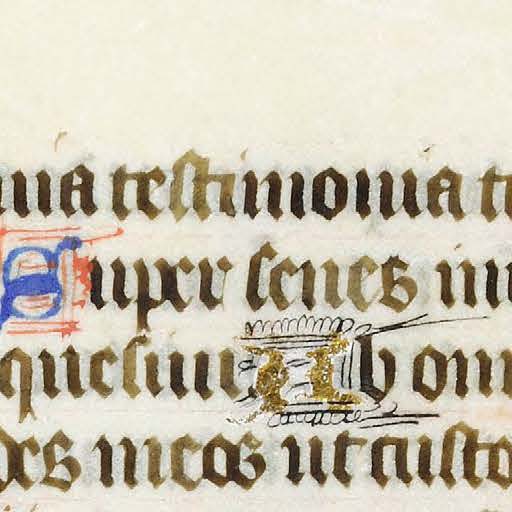 uia testimonia t
Super senes in
quesiui Ab om
des meos ut custo